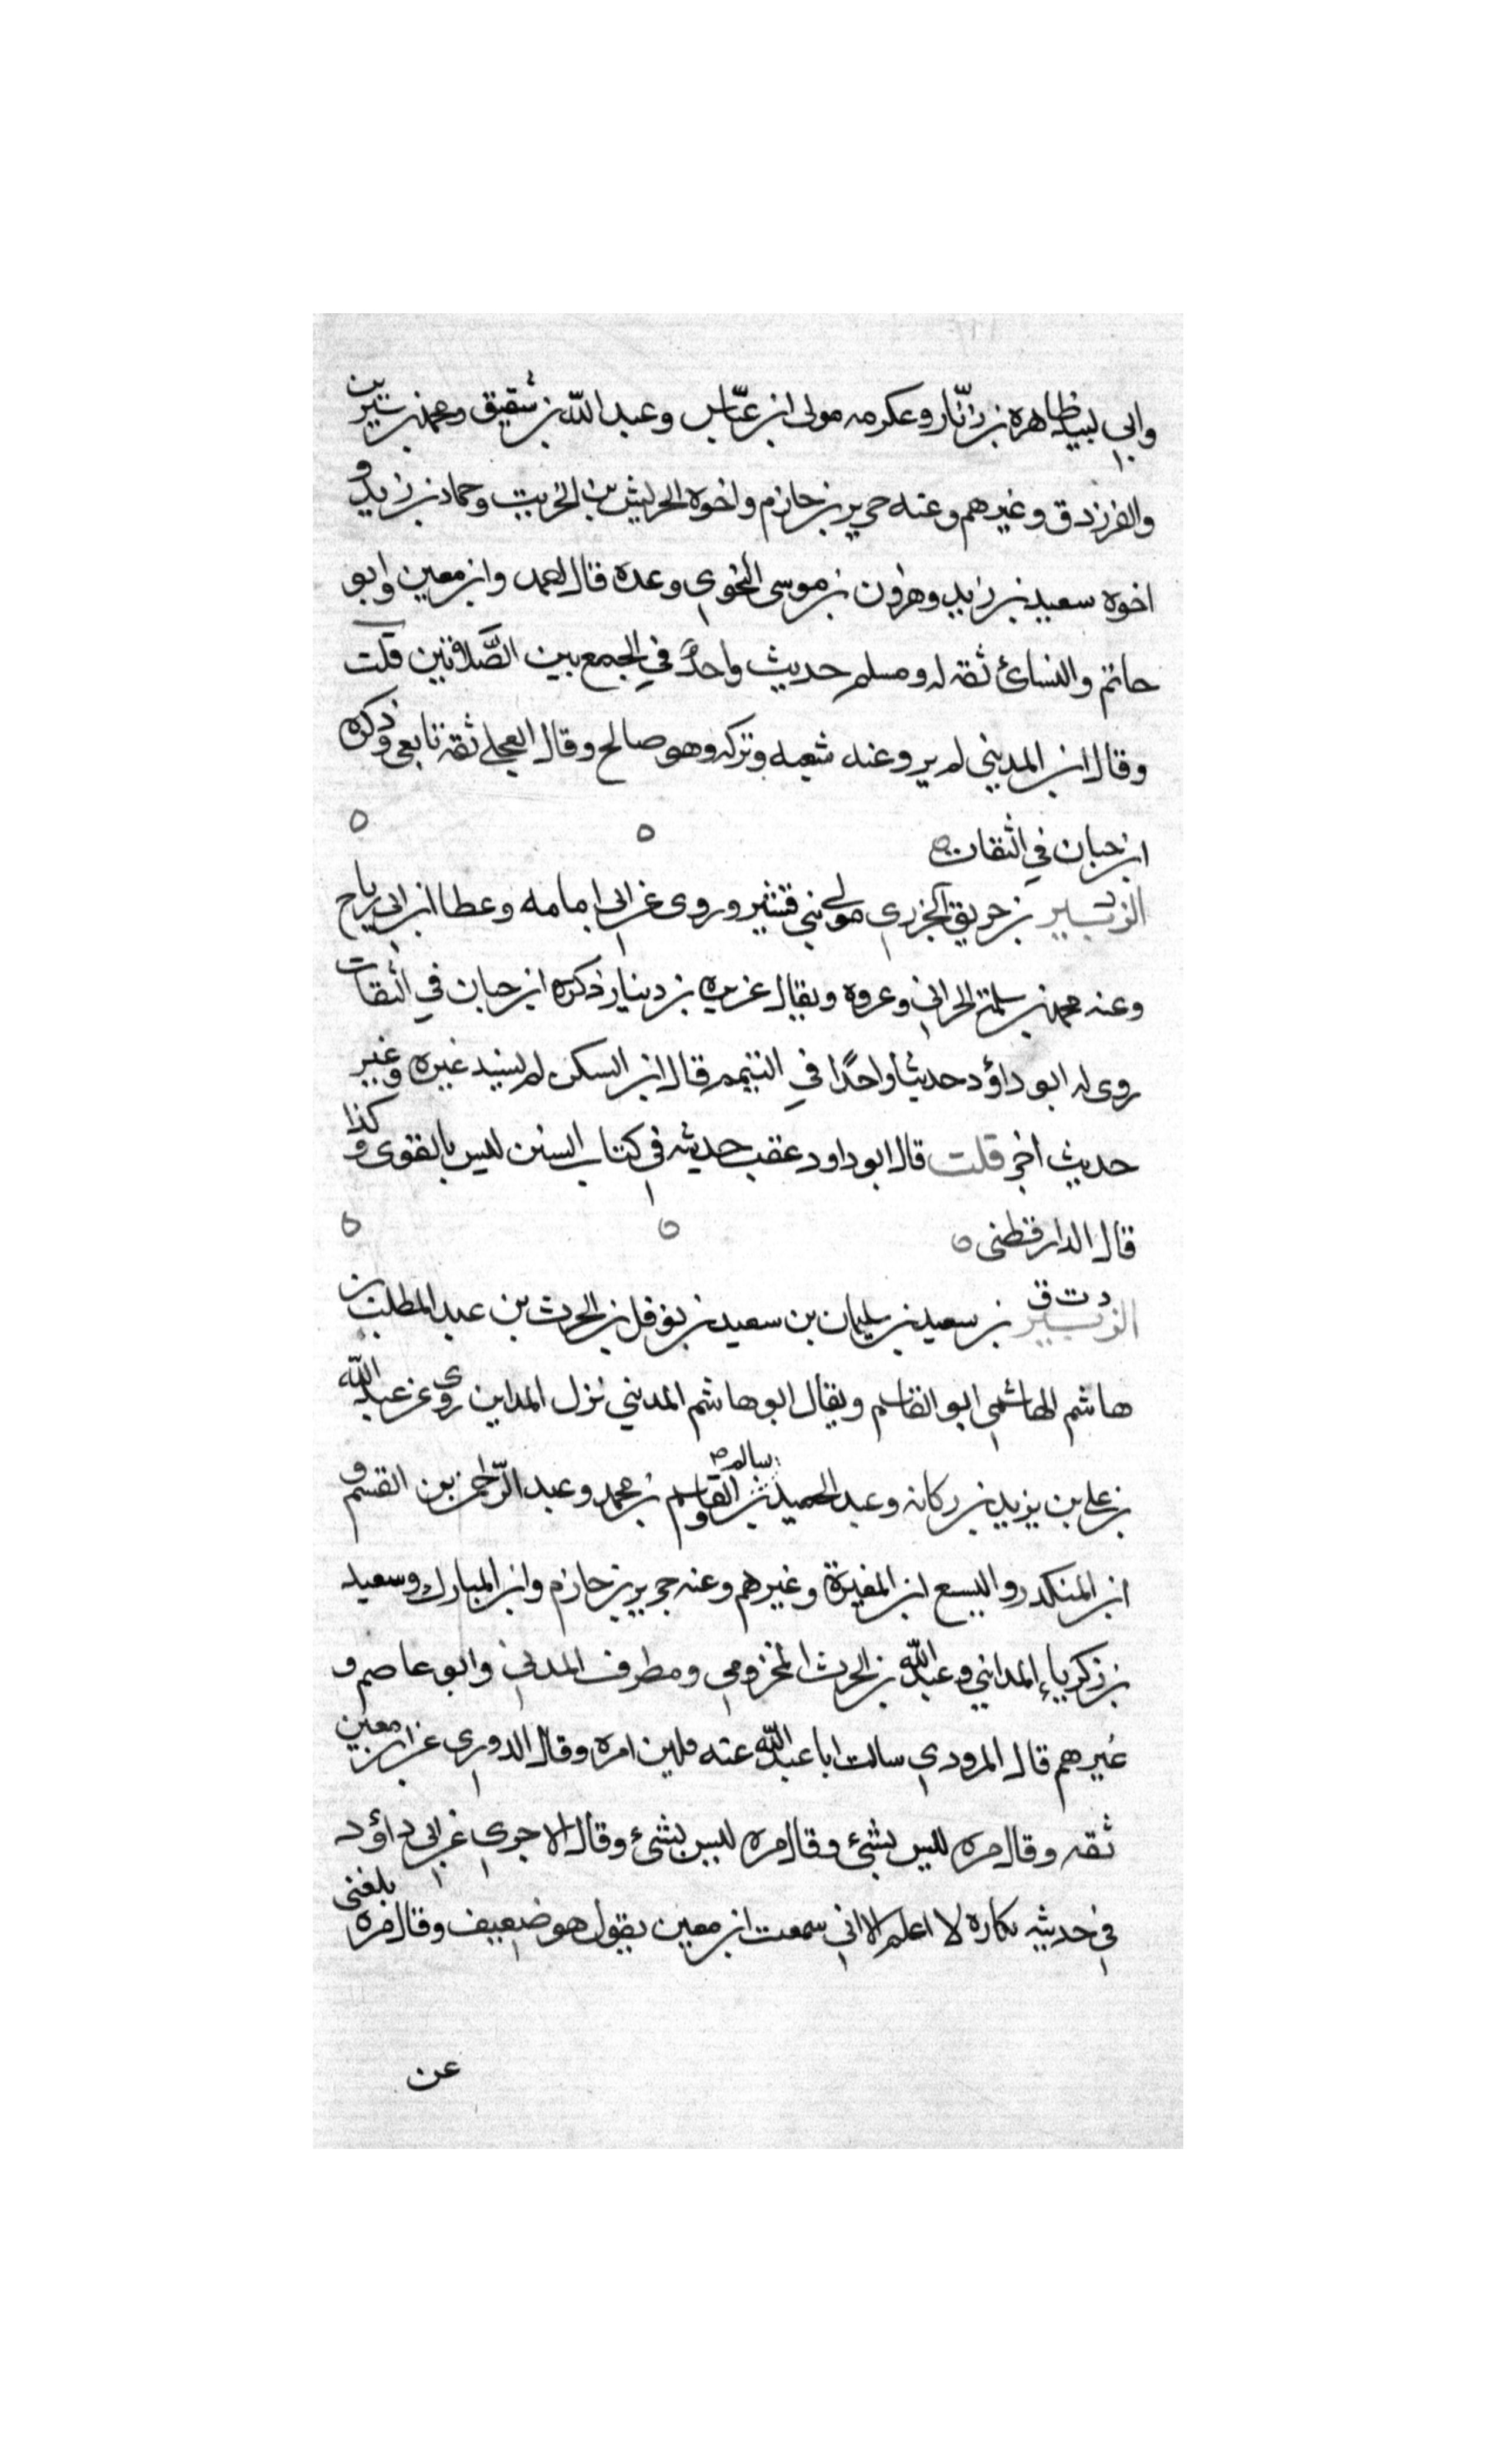 وابي لبيد ظاهرة بن زنّار وعكرمه مولى ابن عبّاس وعبد الله بن شقيق ومحمد بن سيرين
والفرزدق وغيرهم وعنه جرير بن حازم واخوه الحريش بن الخريت وحماد بن زيد و
اخوه سعيد بن زيد وهرون بن موسى النحوي وعدة قال احمد وابن معين وابو
حاتم والنسائ ثقة له ومسلم حديث واحدٌ في الجمع بين الصَّلاتين قلت
وقال ابن المديني لم يرو عنه شعبه وتركه وهو صالح وقال العجلي ثقة تابعي وذكره
ابن حبان في الثقات
الزبير بن خريق الجزري مولى بني قشير وروى عن ابي امامه وعطا ابن ابي رباح
وعنه محمد بن سلمة الحراني وعروة ويقال عزرة بن دينار ذكره ابن حبان في الثقات
روى له ابو داؤد حديثا واحدًا في التيمم قال ابن السكن لم يسند غيره وغير
حديث اخر قلت قال ابو داود عقب حديثه في كتاب السنن ليس بالقوى وكذا
قال الدارقطنى
د ت ق
الزبير بن سعيد بن سليمان بن سعيد بن نوفل بن الحرث بن عبد المطلب بن
هاشم الهاشمي ابو القاسم ويقال ابو هاشم المديني نزل المداين روى عن عبد الله
بن علي بن يزيد بن ركانه وعبد الحميد بن سالم والقاسم بن محمد وعبد الرّحمن بن القسم و
ابن المنكدر واليسع ابن المغيرة وغيرهم وعنه جرير بن حازم وابن المبارك وسعيد
بن زكرياء المدايني وعبد الله بن الحرث المخزومي ومطرف المدني وابو عاصم و
غيرهم قال المرودي سالت ابا عبد الله عنه فلين امره وقال الدوري عن ابن معين
ثقه وقال مره ليس بشئ وقال مره ليس بشئ وقال الاجري عن ابي داؤد
في حديثه نكارة لا اعلم الا اني سمعت ابن معين يقول هو ضعيف وقال مره بلغنى
عن